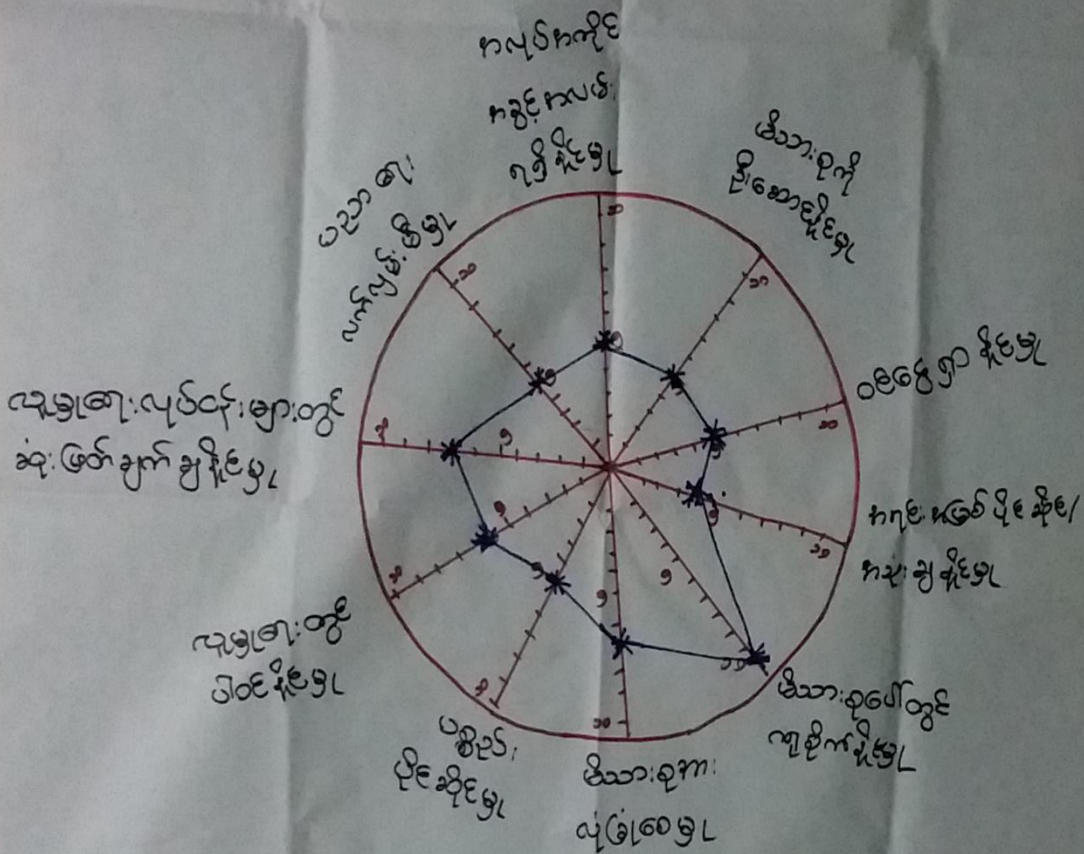 အလုပ်အကိုင်
အခွင့်အလမ်း
ရရှိနိုင်မှု
မိသားစုကို
ဦးဆောင်နိုင်မှု
ဝင်ငွေရှာနိုင်မှု
အရင်းအမြစ်ပိုင်ဆိုင်/
အသုံးချနိုင်မှု
မိသားစုပေါ်တွင်
ကုစိုက်နိုင်မှု
မိသားစုအား
လုံခြုံစေမှု
ပစ္စည်း
ပိုင်ဆိုင်မှု
လူမှုရေးတွင်
ပါဝင်နိုင်မှု
လူမှုရေးလုပ်ငန်းများတွင်
ဆုံးဖြတ်ချက်ချနိုင်မှု
ပညာရေး
လက်လှမ်းမီမှု
၁၀
၁၀
၁၀
၁၀
၁၀
၁၀
၁၀
၁၀
၁၀
၁၀
၅
၅
၅
၅
၅
၅
၅
၅
၅